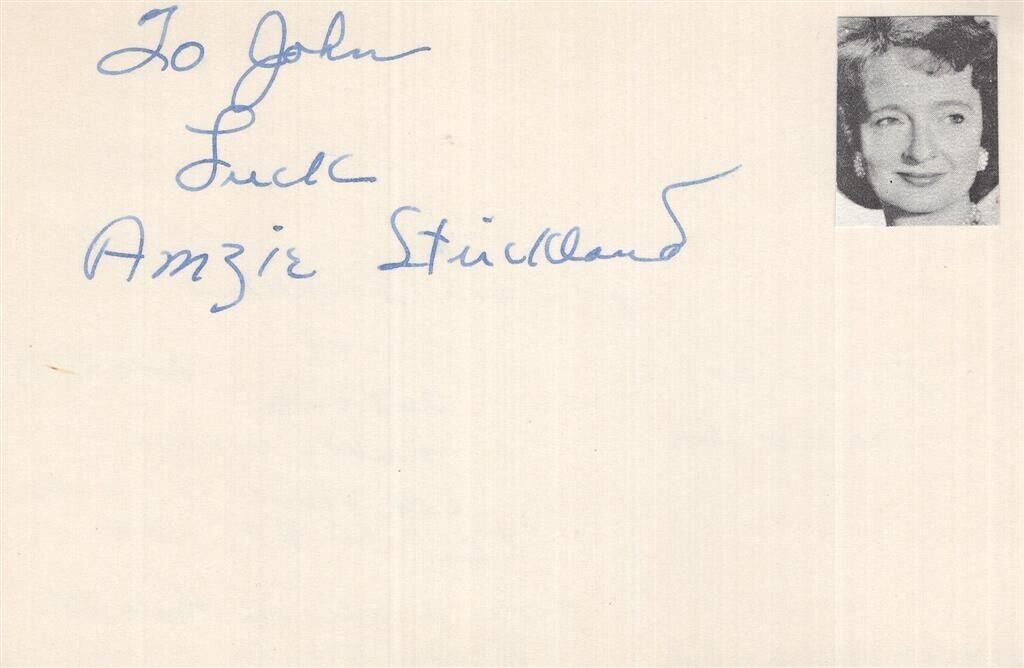 To John
Luck
Amzie Strickland